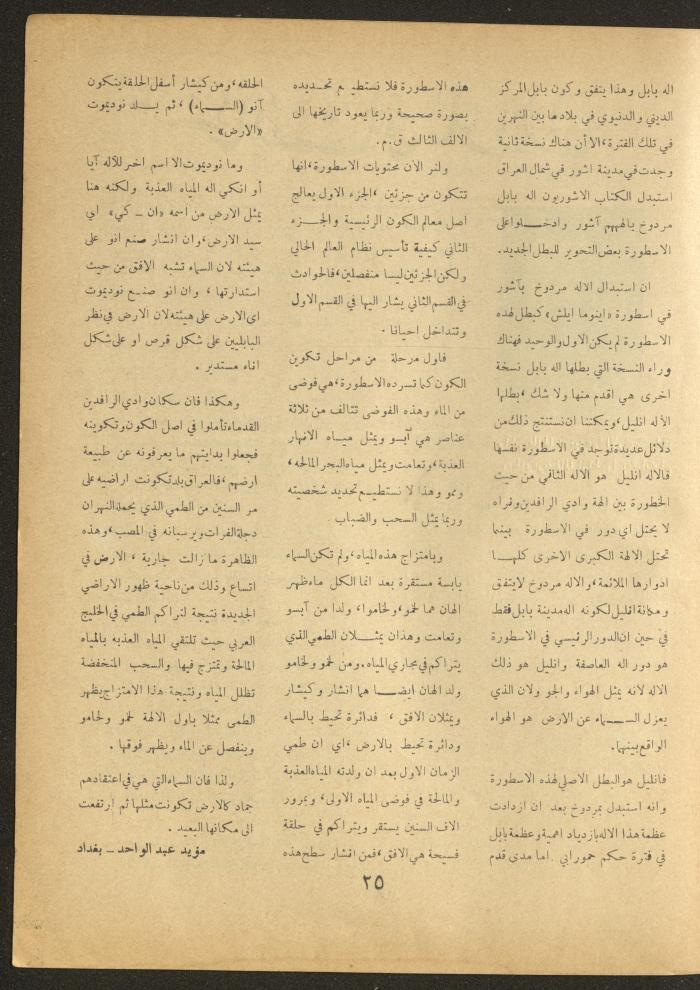 اله بابل وهذا يتفق وكون بابل المركز
الديني والدنيوي في بلاد ما بين النهرين
في تلك الفترة، الا أن هناك نسخة ثانية
وجدت في مدينة اشور في شمال العراق
استبدل الكتاب الاشوريون اله بابل
مردوخ بالههم آشور وادخلوا على
الاسطورة بعض التحوير للبطل الجديد.
ان استبدال الاله مردوخ بآشور
في اسطورة «اينوما ايلش» كبطل لهذه
الاسطورة لم يكن الاول والوحيد فهناك
وراء النسخة التي بطلها اله بابل نسخة
اخرى هي اقدم منها ولا شك، بطلها
الآله انليل، ويمكننا ان نستنتج ذلك من
دلائل عديدة توجد في الاسطورة نفسها
فالاله انليل هو الاله الثاني من حيث
الخطورة بين الهة وادي الرافدين ونراه
لا يحتل اي دور في الاسطورة بينما
تحتل الالهة الكبرى الاخرى كلها
ادوارها الملائمة، والاله مردوخ لا يتفق
ومكانة انليل لكونه اله مدينة بابل فقط
في حين ان الدور الرئيسي في الاسطورة
هو دور اله العاصفة وانليل هو ذلك
الاله لانه يمثل الهواء والجو ولان الذي
يعزل السماء عن الارض هو الهواء
الواقع بينهما.
فانليل هو البطل الاصلي لهذه الاسطورة
وانه استبدل بمردوخ بعد ان ازدادت
عظمة هذا الاله بازدياد اهمية وعظمة بابل
في فترة حكم حمورابي. اما مدى قدم
هذه الاسطورة فلا نستطيع تحديده
بصورة صحيحة وربما يعود تاريخها الى
الالف الثالث ق.م.
ولنر الان محتويات الاسطورة، انها
تتكون من جزئين، الجزء الاول يعالج
اصل معالم الكون الرئيسية والجزء
الثاني كيفية تأسيس نظام العالم الحالي
ولكن الجزئين ليسا منفصلين، فالحوادث
في القسم الثاني يشار اليها في القسم الاول
وتتداخل احيانا.
فاول مرحلة من مراحل تكوين
الكون كما تسرده الاسطورة، هي فوضى
من الماء وهذه الفوضى تتالف من ثلاثة
عناصر هي آبسو ويمثل مياه الانهار
العذبة، وتعامت ويمثل مياه البحر المالحه،
وممو وهذا لا نستطيع تحديد شخصيته
وربما يمثل السحب والضباب
وبامتزاج هذه المياه، ولم تكن السماء
يابسة مستقرة بعد انما الكل ماء ظهر
الهان هما لخمو، ولخاموا، ولدا من آبسو
وتعامت وهذان يمثلان الطمي الذي
يتراكم في مجاري المياه، ومن لخمو ولخامو
ولد الهان ايضا هما انشار وكيشار
ويمثلان الافق، فدائرة تحيط بالسماء
ودائرة تحيط بالارض، اي ان طمي
الزمان الاول بعد ان ولدته المياه العذبة
والمالحة في فوضى المياه الاولى، وبمرور
الاف السنين يستقر ويتراكم في حلقة
فسيحة هي الافق، فمن انشار سطح هذه
الحلقه، ومن كيشار أسفل الحلقة يتكون
آنو (السماء)، ثم يلد نوديموت
«الارض».
وما نوديموت الا اسم اخر للآله آيا
أو انكي اله المياه العذبة ولكنه هنا
يمثل الارض من اسمه «ان - كي» اي
سيد الارض، وان انشار صنع انو على
هيئته لان السماء تشبه الافق من حيث
استدارتها، وان انو صنع نوديموت
اى الارض على هيئته لان الارض في نظر
البابليين على شكل قرص او على شكل
اناء مستدير.
وهكذا فان سكان وادي الرافدين
القدماء تأملوا في اصل الكون وتكوينه
فجعلوا بدايتهم ما يعرفونه عن طبيعة
ارضهم، فالعراق بلد تكونت اراضيه على
مر السنين من الطمي الذي يحمله النهران
دجلة الفرات ويرسبانه في المصب، وهذه
الظاهرة ما زالت جارية، الارض في
اتساع وذلك من ناحية ظهور الاراضي
الجديدة نتيجة لتراكم الطمي في الخليج
العربي حيث تلتقي المياه العذبه بالمياه
المالحة وتمتزج فيها والسحب المنخفضة
تظلل المياه ونتيجة هذا الامتزاج يظهر
الطمى ممثلا باول الالهة لخمو ولخامو
وينفصل عن الماء ويظهر فوقها.
ولذا فان السماء التي هي في اعتقادهم
جماد كالارض تكونت مثلها ثم ارتفعت
الى مكانها البعيد.
مؤيد عبد الواحد - بغداد
٢٥